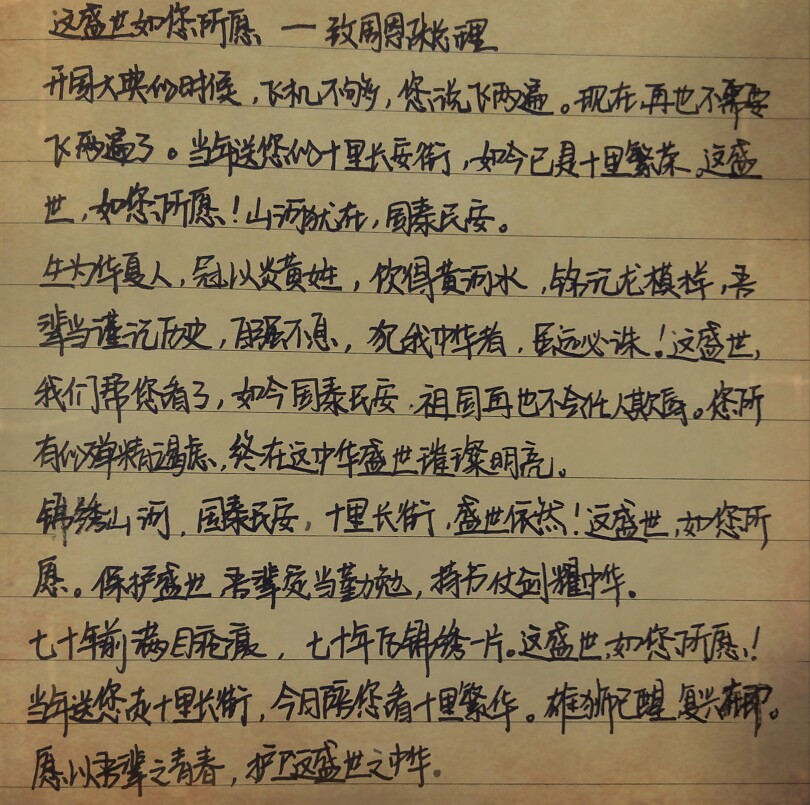 这盛世如您所愿 — 致周恩来总理
开国大典的时候，飞机不够，您说飞两遍。现在再也不需要
飞两遍了。当年送您的十里长安街，如今已是十里繁荣。这盛
世，如您所愿！山河犹在，国泰民安。
生为华夏人，冠以炎黄姓，饮得黄河水，铭沉龙模样，吾
辈当谨记历史，自强不息，犯我中华者，虽远必诛！这盛世，
我们帮您看了，如今国泰民安，祖国再也不会任人欺辱。您所
有的殚精竭虑，终在这中华盛世璀璨明亮。
锦绣山河，国泰民安，十里长街，盛世依然！这盛世，如您所
愿。保护盛世，吾辈定当勤勉，持书仗剑耀中华。
七十年前满目疮痍，七十年后锦绣一片。这盛世，如您所愿！
当年送您走十里长街，今日陪您看十里繁华。雄狮已醒，复兴在即。
愿以吾辈之青春，护卫这盛世之中华。